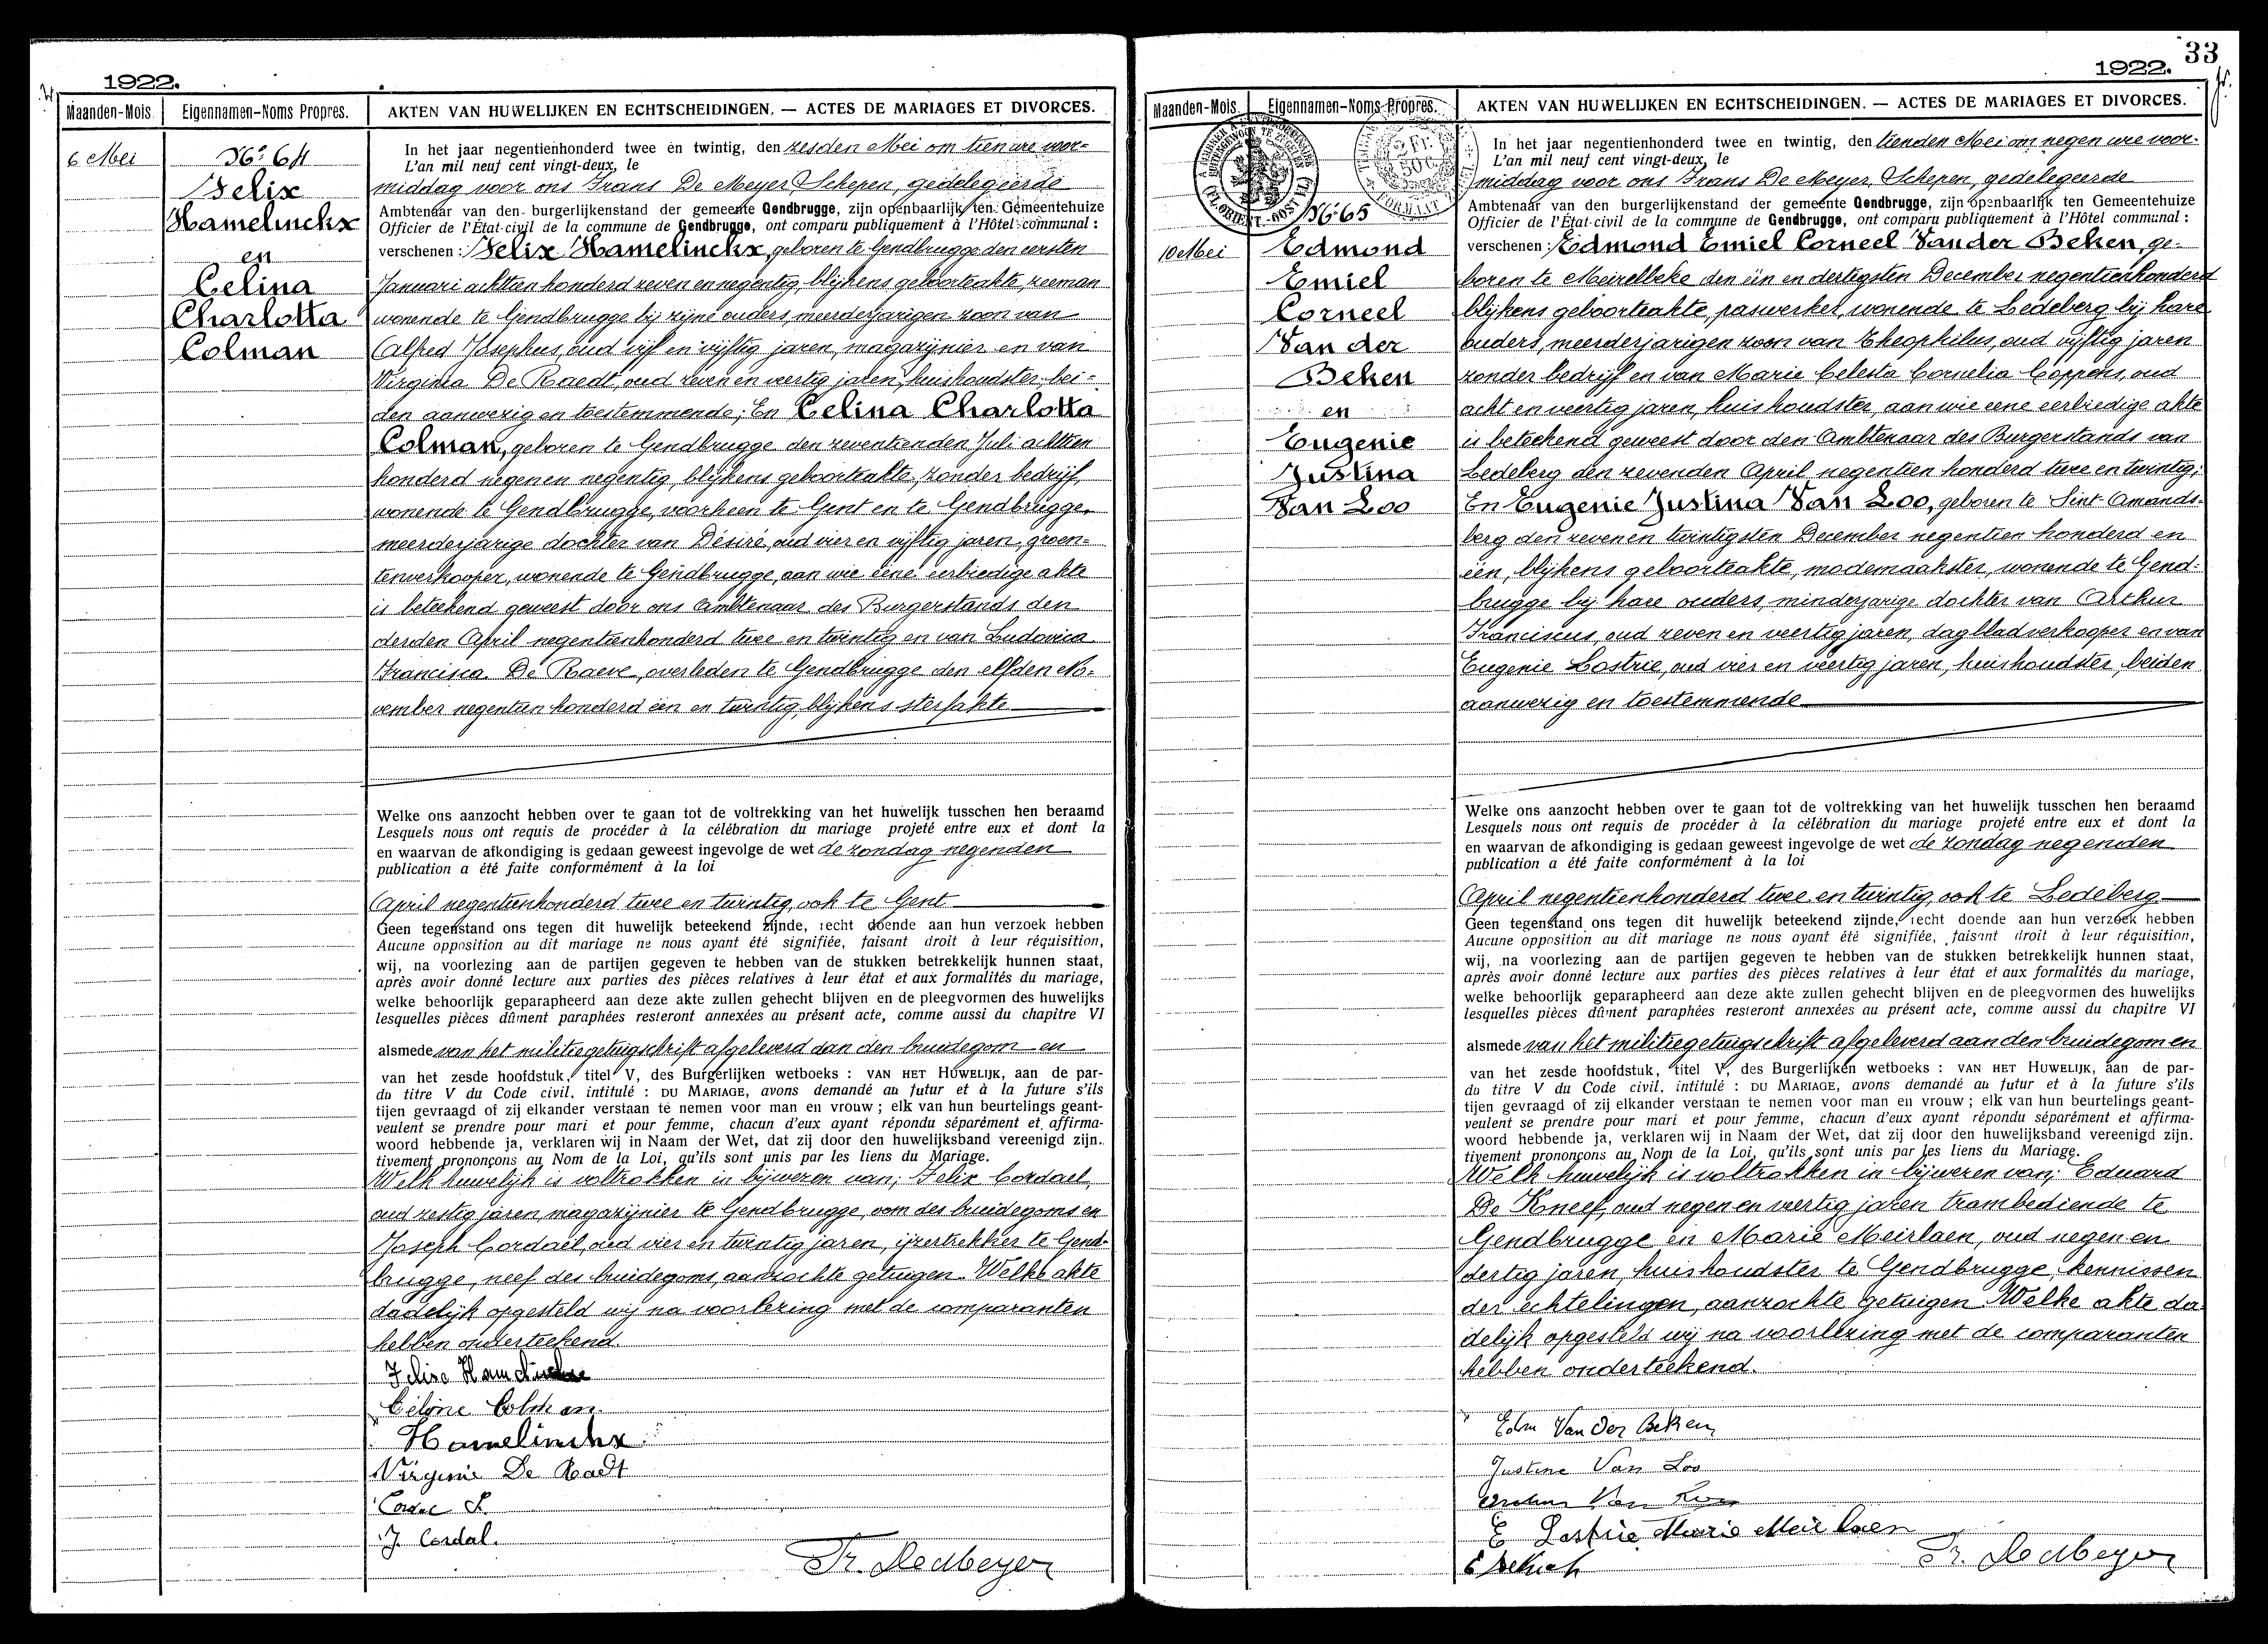 1922.
Maanden-Mois. Eigennamen-Noms Propres. AKTEN VAN HUWELIJKEN EN ECHTSCHEIDINGEN. — ACTES DE MARIAGES ET DIVORCES.
6 Mei
No 64
Felix
Hamelinckx
en
Celina
Charlotta
Colman
In het jaar negentienhonderd twee en twintig, den zesden Mei om tien ure voor-
L'an mil neuf cent vingt-deux, le
middag voor ons Frans De Meyer, Schepen, gedelegeerde
Ambtenaar van den burgerlijkenstand der gemeente Gendbrugge, zijn openbaarlijk ten Gemeentehuize
Officier de l'État-civil de la commune de Gendbrugge, ont comparu publiquement à l'Hôtel communal :
verschenen : Felix Hamelinckx, geboren te Gendbrugge den eersten
Januari achttien honderd zeven en negentig, blijkens geboorteakte, zeeman
wonende te Gendbrugge bij zijne ouders, meerderjarigen zoon van
Alfred Josephus, oud vijf en vijftig jaren, magazijnier en van
Virginia De Raedt, oud zeven en veertig jaren, huishoudster, bei-
den aanwezig en toestemmende; En Celina Charlotta
Colman, geboren te Gendbrugge den zeventienden Juli achttien
honderd negen en negentig, blijkens geboorteakte, zonder bedrijf,
wonende te Gendbrugge, voorheen te Gent en te Gendbrugge,
meerderjarige dochter van Désiré, oud vier en vijftig jaren, groen-
tenverkooper, wonende te Gendbrugge, aan wie eene eerbiedige akte
is beteekend geweest door ons Ambtenaar des Burgerstands den
derden April negentienhonderd twee en twintig en van Ludovica
Francisca De Raeve, overleden te Gendbrugge den elfden No-
vember negentien honderd één en twintig, blijkens sterfakte
Welke ons aanzocht hebben over te gaan tot de voltrekking van het huwelijk tusschen hen beraamd
Lesquels nous ont requis de procéder à la célébration du mariage projeté entre eux et dont la
en waarvan de afkondiging is gedaan geweest ingevolge de wet de zondag negenden
publication a été faite conformément à la loi
April negentienhonderd twee en twintig, ook te Gent
Geen tegenstand ons tegen dit huwelijk beteekend zijnde, recht doende aan hun verzoek hebben
Aucune opposition au dit mariage ne nous ayant été signifiée, faisant droit à leur réquisition,
wij, na voorlezing aan de partijen gegeven te hebben van de stukken betrekkelijk hunnen staat,
après avoir donné lecture aux parties des pièces relatives à leur état et aux formalités du mariage,
welke behoorlijk geparapheerd aan deze akte zullen gehecht blijven en de pleegvormen des huwelijks
lesquelles pièces dûment paraphées resteront annexées au présent acte, comme aussi du chapitre VI
alsmede van het militiegetuigschrift afgeleverd aan den bruidegom en
van het zesde hoofdstuk, titel V, des Burgerlijken wetboeks : VAN HET HUWELIJK, aan de par-
du titre V du Code civil. intitulé : DU MARIAGE, avons demandé au futur et à la future s'ils
tijen gevraagd of zij elkander verstaan te nemen voor man en vrouw ; elk van hun beurtelings geant-
veulent se prendre pour mari et pour femme, chacun d'eux ayant répondu séparément et affirma-
woord hebbende ja, verklaren wij in Naam der Wet, dat zij door den huwelijksband vereenigd zijn.
tivement prononçons au Nom de la Loi, qu'ils sont unis par les liens du Mariage.
Welk huwelijk is voltrokken in bijwezen van; Felix Cordael,
oud zestig jaren, magazijnier te Gendbrugge, oom des bruidegoms en
Joseph Cordael, oud vier en twintig jaren, ijzertrekker te Gend-
brugge, neef des bruidegoms, aanzochte getuigen. Welke akte
dadelijk opgesteld wij na voorlezing met de comparanten
hebben onderteekend.
Felix Hamelinckx
Céline Colman
Hamelinckx
Virginie De Raedt
J. Cordal.
Fr. DeMeyer
33
1922.
Maanden-Mois. Eigennamen-Noms Propres. AKTEN VAN HUWELIJKEN EN ECHTSCHEIDINGEN. — ACTES DE MARIAGES ET DIVORCES.
No 65
10 Mei
Edmond
Emiel
Corneel
Van der
Beken
en
Eugenie
Justina
Van Loo
In het jaar negentienhonderd twee en twintig, den tienden Mei om negen ure voor-
L'an mil neuf cent vingt-deux, le
middag voor ons Frans De Meyer, Schepen, gedelegeerde
Ambtenaar van den burgerlijkenstand der gemeente Gendbrugge, zijn openbaarlijk ten Gemeentehuize
Officier de l'État-civil de la commune de Gendbrugge, ont comparu publiquement à l'Hôtel communal :
verschenen : Edmond Emiel Corneel Van der Beken, ge-
boren te Meirelbeke den één en dertigsten December negentienhonderd
blijkens geboorteakte, paswerker, wonende te Ledeberg bij hare
ouders, meerderjarigen zoon van Theophilus, oud vijftig jaren
zonder bedrijf en van Marie Celesta Cornelia Coppens, oud
acht en veertig jaren, huishoudster, aan wie eene eerbiedige akte
is beteekend geweest door den Ambtenaar des Burgerstands van
Ledeberg den zevenden April negentien honderd twee en twintig;
En Eugenie Justina Van Loo, geboren te Sint-Amands-
berg den zeven en twintigsten December negentien honderd en
één, blijkens geboorteakte, modemaakster, wonende te Gend-
brugge bij hare ouders, minderjarige dochter van Arthur
Franciscus, oud zeven en veertig jaren, dagbladverkooper en van
Eugenie Lostrie, oud vier en veertig jaren, huishoudster, beiden
aanwezig en toestemmende
Welke ons aanzocht hebben over te gaan tot de voltrekking van het huwelijk tusschen hen beraamd
Lesquels nous ont requis de procéder à la célébration du mariage projeté entre eux et dont la
en waarvan de afkondiging is gedaan geweest ingevolge de wet de zondag negenden
publication a été faite conformément à la loi
April negentienhonderd twee en twintig, ook te Ledeberg
Geen tegenstand ons tegen dit huwelijk beteekend zijnde, recht doende aan hun verzoek hebben
Aucune opposition au dit mariage ne nous ayant été signifiée, faisant droit à leur réquisition,
wij, na voorlezing aan de partijen gegeven te hebben van de stukken betrekkelijk hunnen staat,
après avoir donné lecture aux parties des pièces relatives à leur état et aux formalités du mariage,
welke behoorlijk geparapheerd aan deze akte zullen gehecht blijven en de pleegvormen des huwelijks
lesquelles pièces dûment paraphées resteront annexées au présent acte, comme aussi du chapitre VI
alsmede van het militiegetuigschrift afgeleverd aan den bruidegom en
van het zesde hoofdstuk, titel V, des Burgerlijken wetboeks : VAN HET HUWELIJK, aan de par-
du titre V du Code civil. intitulé : DU MARIAGE, avons demandé au futur et à la future s'ils
tijen gevraagd of zij elkander verstaan te nemen voor man en vrouw ; elk van hun beurtelings geant-
veulent se prendre pour mari et pour femme, chacun d'eux ayant répondu séparément et affirma-
woord hebbende ja, verklaren wij in Naam der Wet, dat zij door den huwelijksband vereenigd zijn.
tivement prononçons au Nom de la Loi, qu'ils sont unis par les liens du Mariage.
Welk huwelijk is voltrokken in bijwezen van; Eduard
De Kneef, oud negen en veertig jaren trambediende te
Gendbrugge en Marie Meirlaen, oud negen en
dertig jaren, huishoudster te Gendbrugge, kennissen
der echtelingen, aanzochte getuigen. Welke akte da-
delijk opgesteld wij na voorlezing met de comparanten
hebben onderteekend.
Edm Van Der Beken
Justine Van Loo
Van Loo
E Lostrie Marie Meirlaen
Fr. DeMeyer